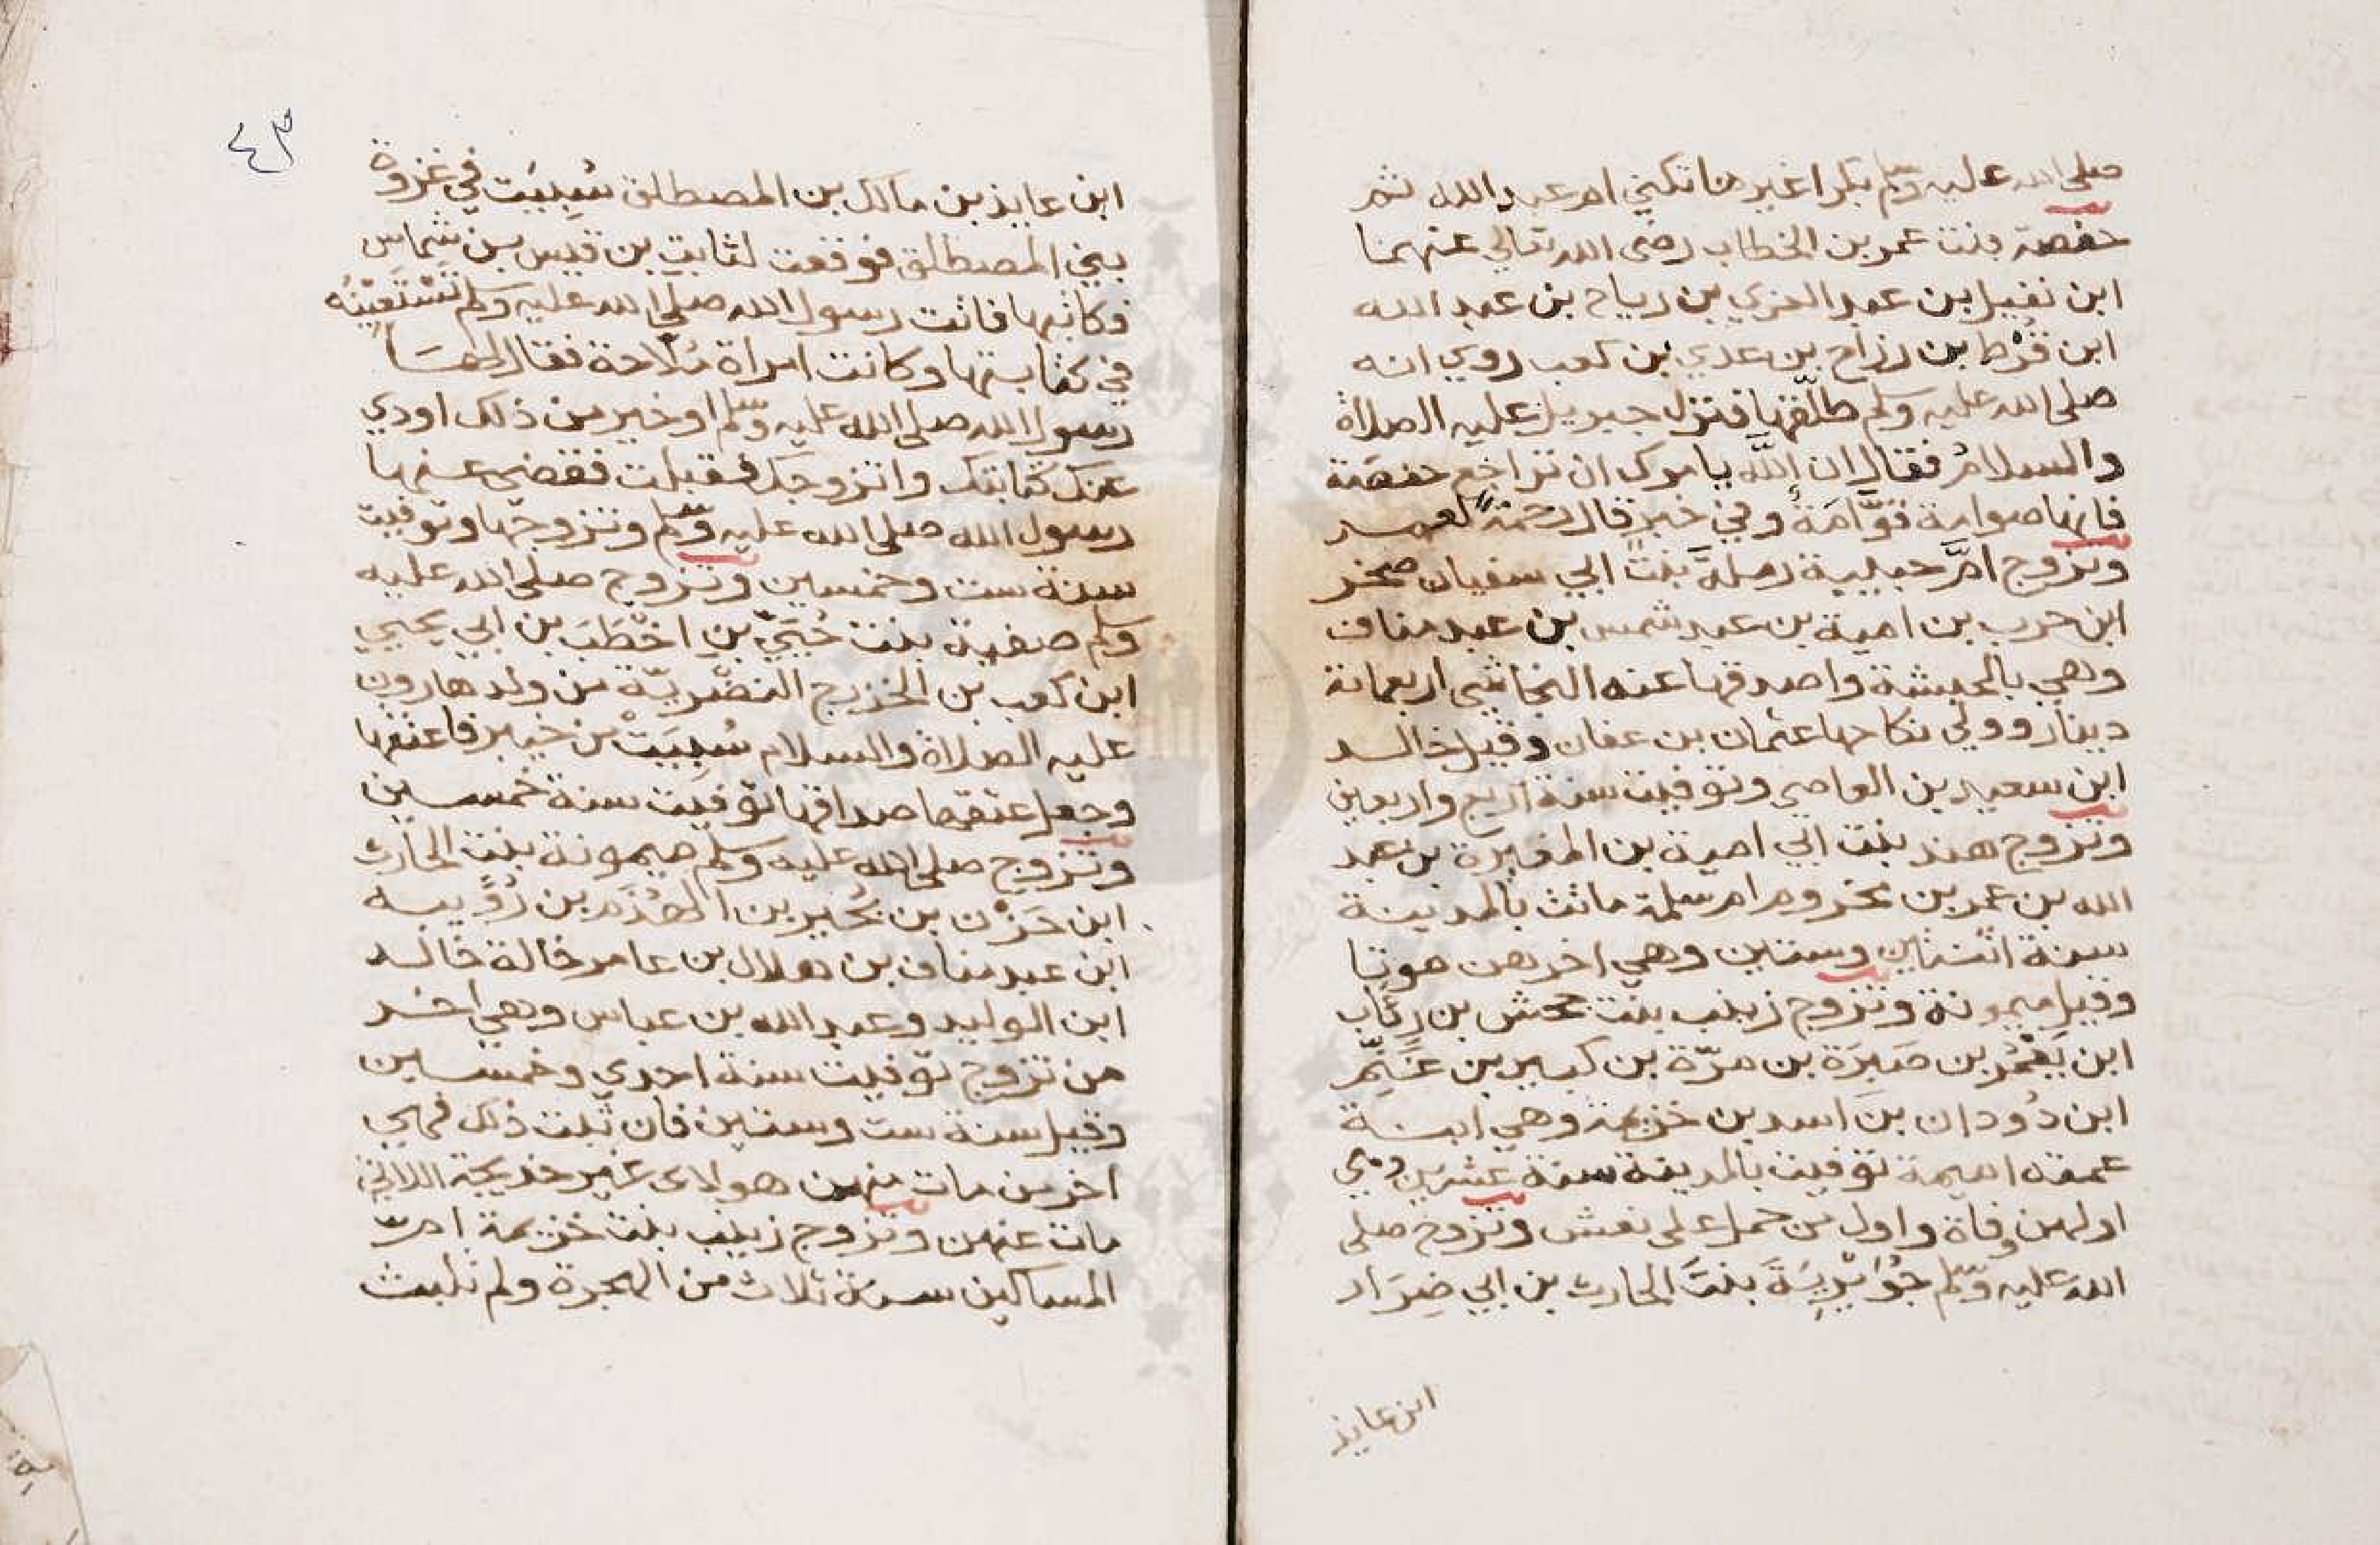 صلى الله عليه وسلم بكرا غيرها تكنى ام عبد الله ثم
حفصة بنت عمر بن الخطاب رضى الله تعالى عنهما
ابن نفيل بن عبد العزي بن رياح بن عبد الله
ابن قُرْط بن رزاح بن عدي بن كعب روي انه
صلى الله عليه وسلم طلّقها فنزل جبريل عليه الصلاة
والسلامُ فقال ان اللَّه يامرك ان تراجع حفصَة
فانها صوامة قوَّامَةً وفي خبر قال رحمةً لعمر
وتزوج امَّ حبيبة رملة بنت ابي سفيان صخر
ابن حرب بن امية بن عبد شمس بن عبد مناف
وهي بالحبشة واصدقها عنه النجاشي اربعمائة
دينار وولي نكاحها عثمان بن عفان وقيل خالد
ابن سعيد بن العاصي وتوفيت سنة اربع واربعين
وتزوج هند بنت ابي امية بن المغيرة بن عبد
الله بن عمر بن مخزوم ام سلمة ماتت بالمدينة
سنة اثنتين وستين وهي اخرهن موتا
وقيل ميمونة وتزوج زينب بنت جحش بن رئاب
ابن يَعْمُر بن صَبِرَة بن مرّة بن كبير بن غَنِم
ابن دُودان بن اسد بن خزيمة وهي ابنة
عمته اميمة توفيت بالمدينة سنة عشرين وهي
اولهن وفاة واول من حمل على نعش وتزوج صلى
الله عليه وسلم جُوَيْرِيَةَ بنتَ الحارث بن ابي ضِرَار
ابن عايذ
٤٣
ابن عايذ بن مالك بن المصطلق سُبِيَت في غزوة
بني المصطلق فوقعت لثابت بن قيس بن شماس
فكاتبها فاتت رسول الله صلى الله عليه وسلم تَسْتَعِيْنُه
في كتابتها وكانت امراة مُلّاحة فقال لها
رسول الله صلى الله عليه وسلم او خير من ذلك اودي
عنك كتابتك واتزوجك فقبلت فقضى عنها
رسول الله صلى الله عليه وسلم وتزوجها وتوفيت
سنة ست وخمسين وتزوج صلى الله عليه
وسلم صفية بنت حُيَيّ بن اخْطَبَ بن ابي يحيي
ابن كعب بن الخزرج النضْريّة من ولد هارون
عليه الصلاة والسلام سُبِيَتْ من خيبر فاعتقها
وجعل عتقها صداقها توفيت سنة خمسين
وتزوج صلى الله عليه وسلم ميمونة بنت الحارث
ابن حَزْن بن بُجَير بن الهُزَم بن رُوَيبة
ابن عبد مناف بن هلال بن عامر خالة خالد
ابن الوليد وعبد الله بن عباس وهي اخر
من تزوج توفيت سنة احدي وخمسين
وقيل سنة ست وستين فان ثبت ذلك فهي
اخر من مات منهن هولاء غير خديجة اللاتي
مات عنهن وتزوج زينب بنت خزيمة امّ
المساكين سنة ثلاث من الهجرة ولم تلبث